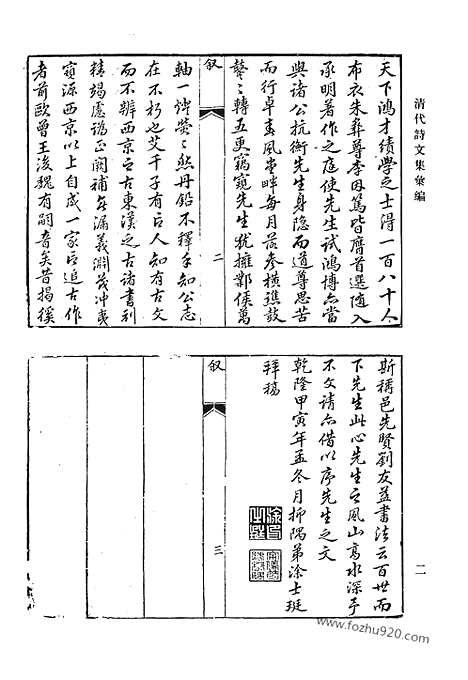 清代詩文集彙編
天下鴻才績學之士得一百八十人
布衣朱彝尊李因篤皆膺首選隨入
承明著作之庭使先生試鴻博亦當
與諸公抗衡先生身隱而道尊思苦
而行卓春風堂畔每月落參橫譙鼓
鼕〻轉五更竊窺先生猶擁鄴侯萬
叙
二
軸一燈熒〻然丹鉛不釋手知公志
在不朽也艾千子有言人知有古文
而不辨西京之古東漢之古諸書剖
精竭慮譌正闕補漏義淵茂冲夷
窺源西京以上自成一家言追古作
者前歐曾王後魏有嗣音矣昔揭徯
二
斯稱邑先賢劉友益書法云百世而
下先生此心先生之風山高水深予
不文請亦借以序先生之文
乾隆甲寅年孟冬月抑隅弟涂士珽
拜稿
叙
三
www.fozhu920.com